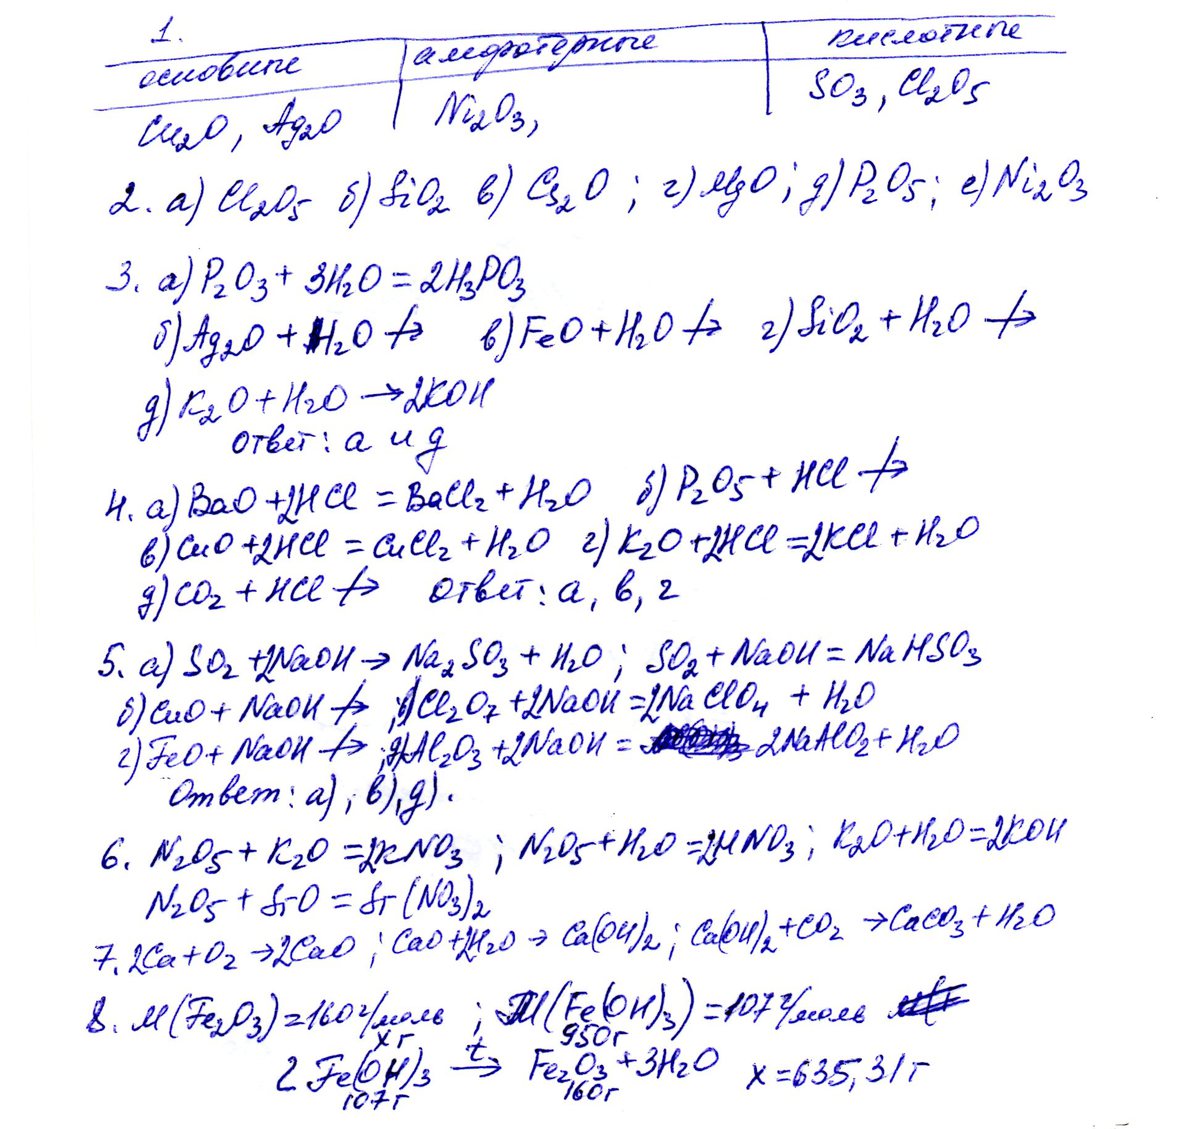 1.
основные амфотерные кислотные
Cu₂O, Ag₂O Ni₂O₃, SO₃, Cl₂O₅
2. а) Cl₂O₅ б) SiO₂ в) Cs₂O ; г) MgO ; д) P₂O₅ ; е) Ni₂O₃
3. а) P₂O₃ + 3H₂O = 2H₃PO₃
б) Ag₂O + H₂O ↛ в) FeO + H₂O ↛ г) SiO₂ + H₂O ↛
д) K₂O + H₂O → 2KOH
ответ: а и д
4. а) BaO + 2HCl = BaCl₂ + H₂O б) P₂O₅ + HCl ↛
в) CuO + 2HCl = CuCl₂ + H₂O г) K₂O + 2HCl = 2KCl + H₂O
д) CO₂ + HCl ↛ ответ: а, в, г
5. а) SO₂ + 2NaOH → Na₂SO₃ + H₂O ; SO₂ + NaOH = NaHSO₃
б) CuO + NaOH ↛ ; в) Cl₂O₇ + 2NaOH = 2NaClO₄ + H₂O
г) FeO + NaOH ↛ ; д) Al₂O₃ + 2NaOH = 2NaAlO₂ + H₂O
Ответ: а), в), д).
6. N₂O₅ + K₂O = 2KNO₃ ; N₂O₅ + H₂O = 2HNO₃ ; K₂O + H₂O = 2KOH
N₂O₅ + SrO = Sr(NO₃)₂
7. 2Ca + O₂ → 2CaO ; CaO + 2H₂O → Ca(OH)₂ ; Ca(OH)₂ + CO₂ → CaCO₃ + H₂O
8. M(Fe₂O₃) = 160 г/моль ; M(Fe(OH)₃) = 107 г/моль
х г 950г
2Fe(OH)₃ t→ Fe₂O₃ + 3H₂O х = 635,31 г
107г 160г